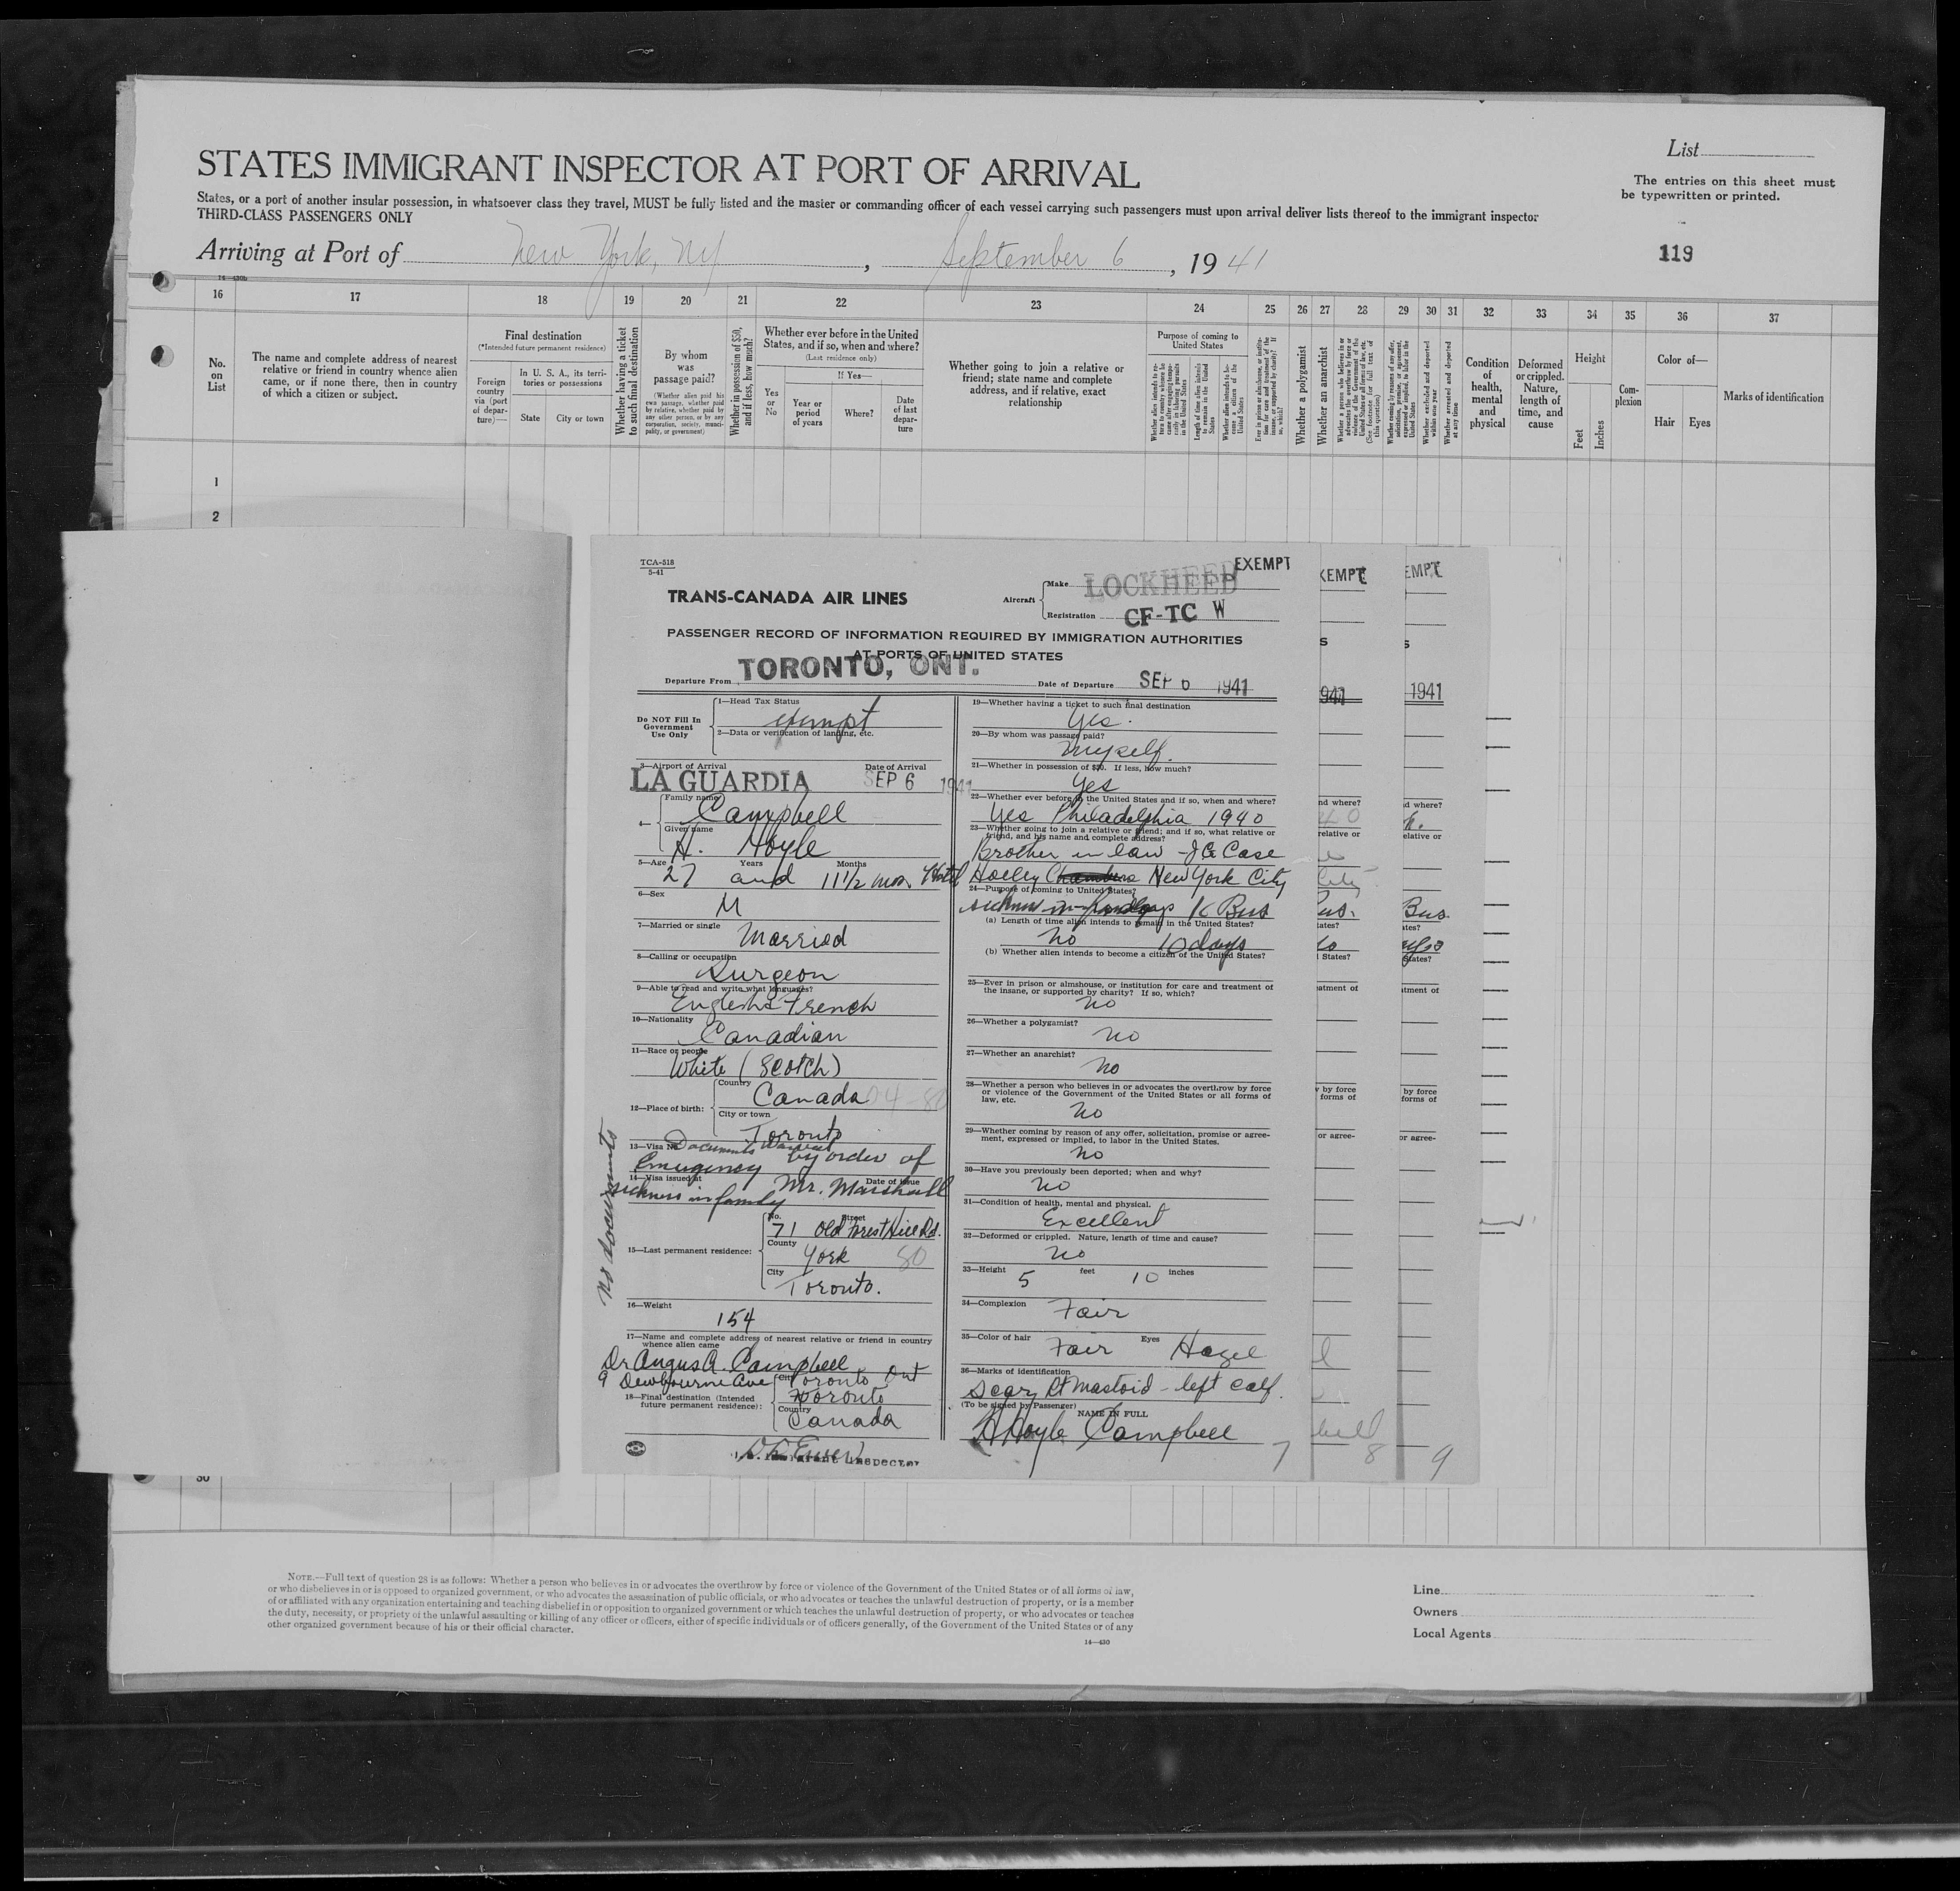 STATES IMMIGRANT INSPECTOR AT PORT OF ARRIVAL
List
The entries on this sheet must
be typewritten or printed.
States, or a port of another insular possession, in whatsoever class they travel, MUST be fully listed and the master or commanding officer of each vessel carrying such passengers must upon arrival deliver lists thereof to the immigrant inspector
THIRD-CLASS PASSENGERS ONLY
Arriving at Port of New York, NY, September 6, 1941
119
14—430b
16 17 18 19 20 21 22 23 24 25 26 27 28 29 30 31 32 33 34 35 36 37
No. on List
The name and complete address of nearest
relative or friend in country whence alien
came, or if none there, then in country
of which a citizen or subject.
Final destination
(*Intended future permanent residence)
Foreign country via (port of departure)—
In U. S. A., its territories or possessions
State
City or town
Whether having a ticket to such final destination
By whom was passage paid?
(Whether alien paid his own passage, whether paid by relative, whether paid by any other person, or by any corporation, society, municipality, or government)
Whether in possession of $50, and if less, how much?
Whether ever before in the United
States, and if so, when and where?
(Last residence only)
Yes or No
If Yes—
Year or period of years
Where?
Date of last departure
Whether going to join a relative or
friend; state name and complete
address, and if relative, exact
relationship
Purpose of coming to
United States
Whether a polygamist
Whether an anarchist
Condition of health, mental and physical
Deformed or crippled. Nature, length of time, and cause
Height
Feet
Inches
Complexion
Color of—
Hair
Eyes
Marks of identification
1
2
TCA-518
5-41
TRANS-CANADA AIR LINES
Aircraft
Make LOCKHEED
EXEMPT
Registration CF-TC W
PASSENGER RECORD OF INFORMATION REQUIRED BY IMMIGRATION AUTHORITIES
AT PORTS OF UNITED STATES
Departure From TORONTO, ONT.
Date of Departure SEP 6 1941
Do NOT Fill In
Government
Use Only
1—Head Tax Status
exempt
2—Data or verification of landing, etc.
3—Airport of Arrival
Date of Arrival
LA GUARDIA SEP 6 1941
4—
Family name
Campbell
Given name
H. Hoyle
5—Age Years Months
27 and 11 1/2 mos.
6—Sex
M
7—Married or single
Married
8—Calling or occupation
Surgeon
9—Able to read and write what languages?
English & French
10—Nationality
Canadian
11—Race or people
White (Scotch)
12—Place of birth:
Country
Canada
City or town
Toronto
13—Visa No.
Documents Waived
by order of
Emergency
14—Visa issued at
Date of issue
Mr. Marshall
sickness in family
No documents
15—Last permanent residence:
No. Street
71 Old Forest Hill Rd.
County
York 80
City
Toronto.
16—Weight
154
17—Name and complete address of nearest relative or friend in country
whence alien came
Dr Angus A. Campbell
9 Dewbourne Ave Toronto Ont
18—Final destination (Intended
future permanent residence):
City
Toronto
Country
Canada
Immigrant Inspector
19—Whether having a ticket to such final destination
Yes.
20—By whom was passage paid?
Myself.
21—Whether in possession of $50. If less, how much?
Yes
22—Whether ever before in the United States and if so, when and where?
Yes Philadelphia 1940
23—Whether going to join a relative or friend; and if so, what relative or
friend, and his name and complete address?
Brother in law - J G Case
Hotel Holley Chambers New York City
24—Purpose of coming to United States?
Bus
(a) Length of time alien intends to remain in the United States?
No 10 days
(b) Whether alien intends to become a citizen of the United States?
25—Ever in prison or almshouse, or institution for care and treatment of
the insane, or supported by charity? If so, which?
No
26—Whether a polygamist?
No
27—Whether an anarchist?
No
28—Whether a person who believes in or advocates the overthrow by force
or violence of the Government of the United States or all forms of
law, etc.
No
29—Whether coming by reason of any offer, solicitation, promise or agree-
ment, expressed or implied, to labor in the United States.
No
30—Have you previously been deported; when and why?
No
31—Condition of health, mental and physical.
Excellent
32—Deformed or crippled. Nature, length of time and cause?
No
33—Height 5 feet 10 inches
34—Complexion
Fair
35—Color of hair Fair Eyes Hazel
36—Marks of identification
Scar Rt Mastoid - left calf.
(To be signed by Passenger)
NAME IN FULL
H Hoyle Campbell
7
8
9
30
NOTE.—Full text of question 28 is as follows: Whether a person who believes in or advocates the overthrow by force or violence of the Government of the United States or of all forms of law,
or who disbelieves in or is opposed to organized government, or who advocates the assassination of public officials, or who advocates or teaches the unlawful destruction of property, or is a member
of or affiliated with any organization entertaining and teaching disbelief in or opposition to organized government or which teaches the unlawful destruction of property, or who advocates or teaches
the duty, necessity, or propriety of the unlawful assaulting or killing of any officer or officers, either of specific individuals or of officers generally, of the Government of the United States or of any
other organized government because of his or their official character.
14—430
Line
Owners
Local Agents